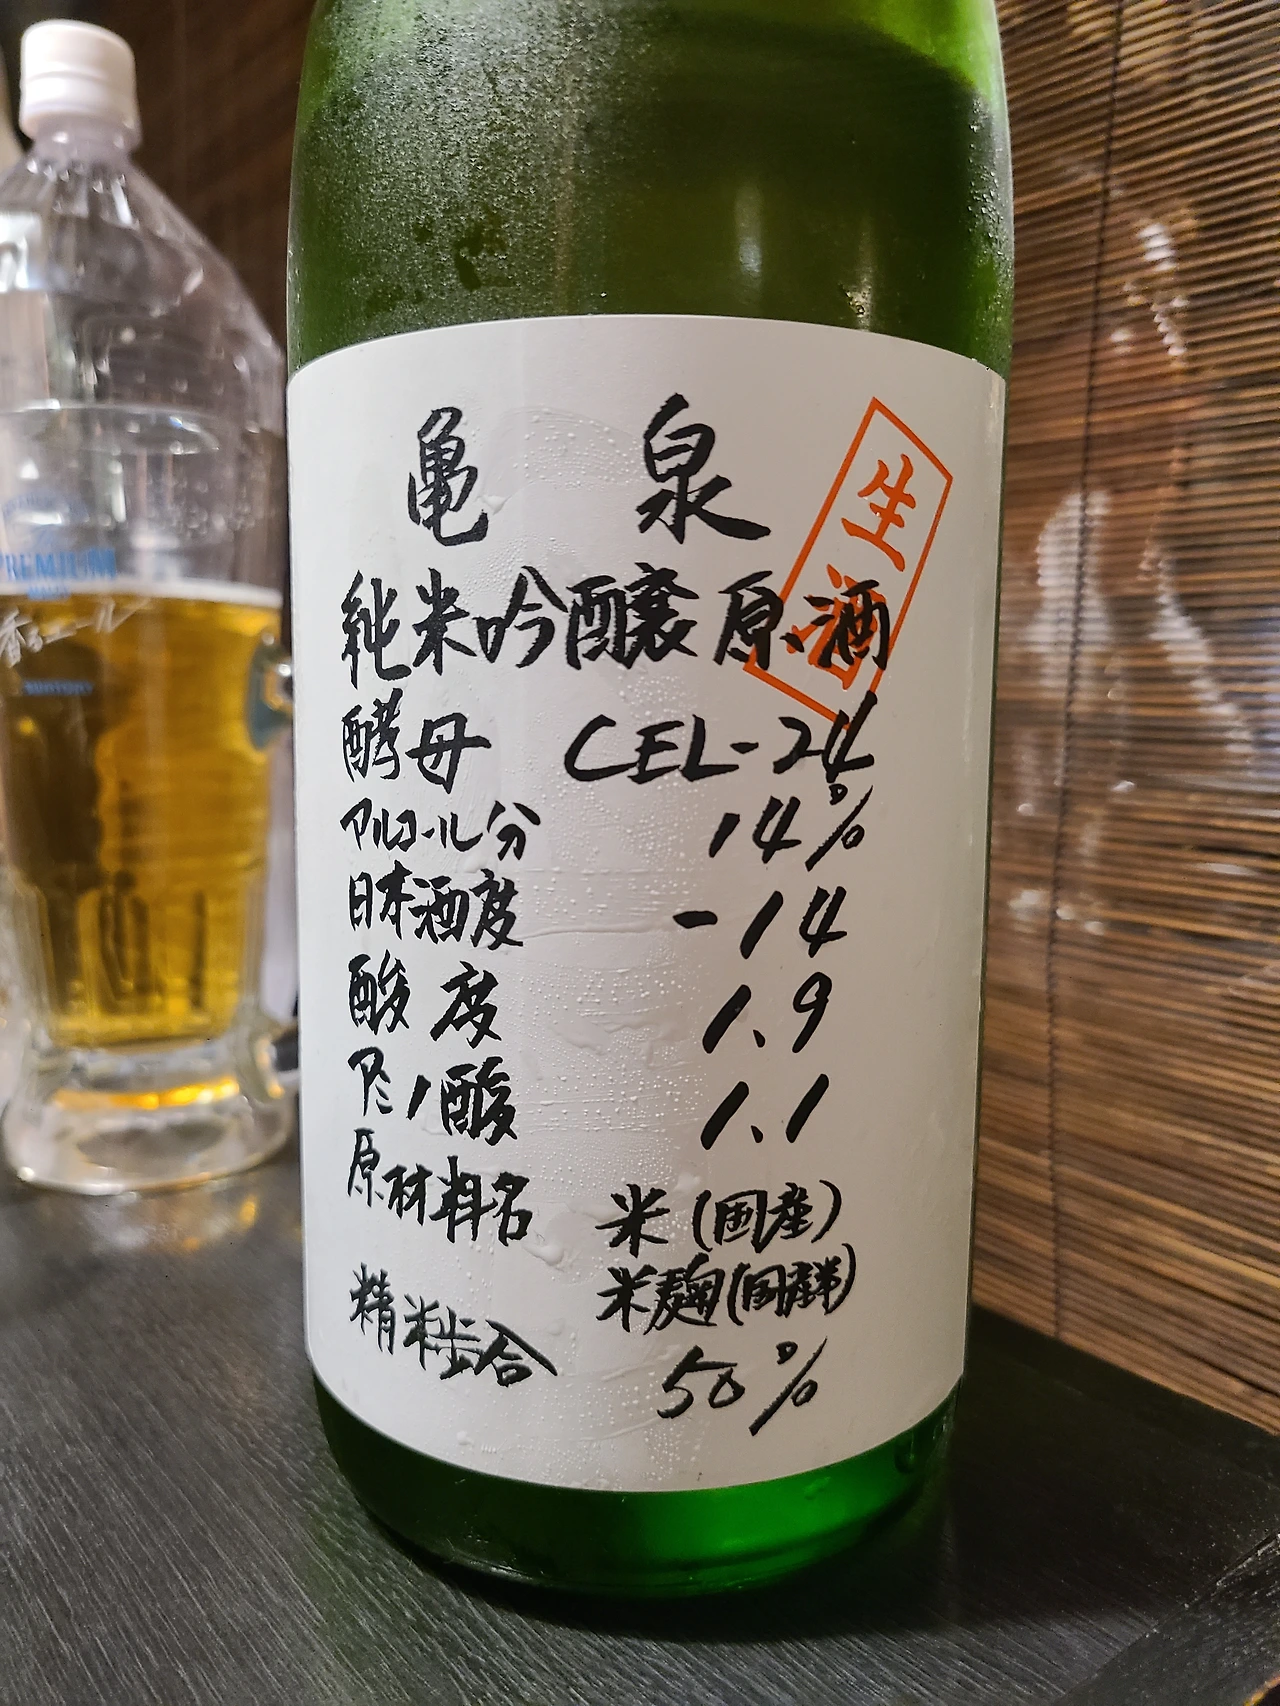 亀泉
生酒
純米吟醸原酒
酵母 CEL-24
アルコール分 14%
日本酒度 -14
酸度 1.9
アミノ酸 1.1
原材料名 米(国産)
米麹(国産米)
精米歩合 50%
PREMIUM
香るエール
SUNTORY